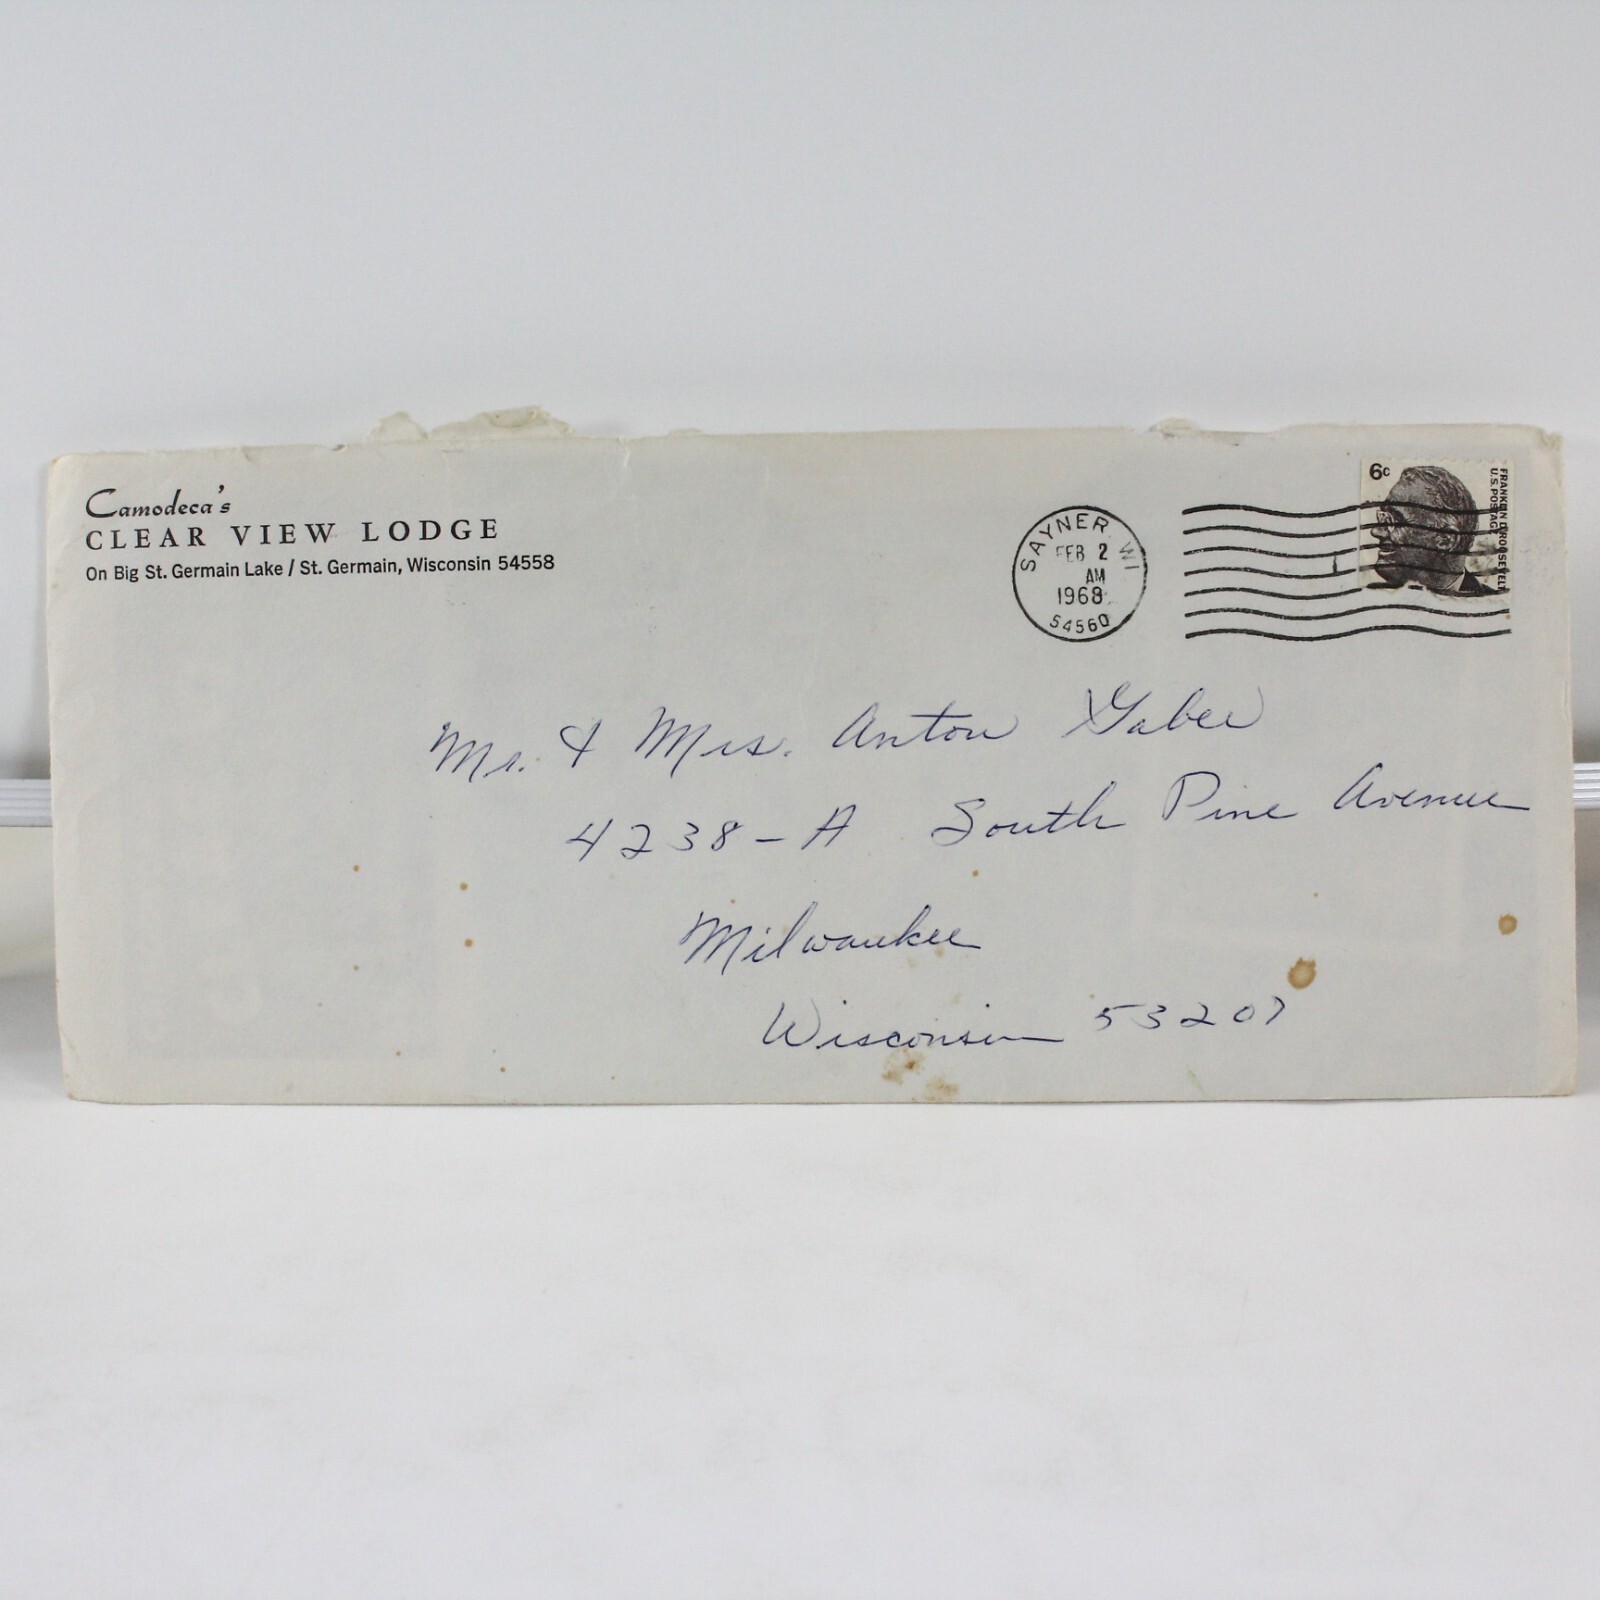 Camodeca's
CLEAR VIEW LODGE
On Big St. Germain Lake / St. Germain, Wisconsin 54558
SAYNER WI
FEB 2
AM
1968
54560
6c
FRANKLIN D. ROOSEVELT
U.S. POSTAGE
Mr. & Mrs. Anton Gaber
4238-A South Pine Avenue
Milwaukee
Wisconsin 53207